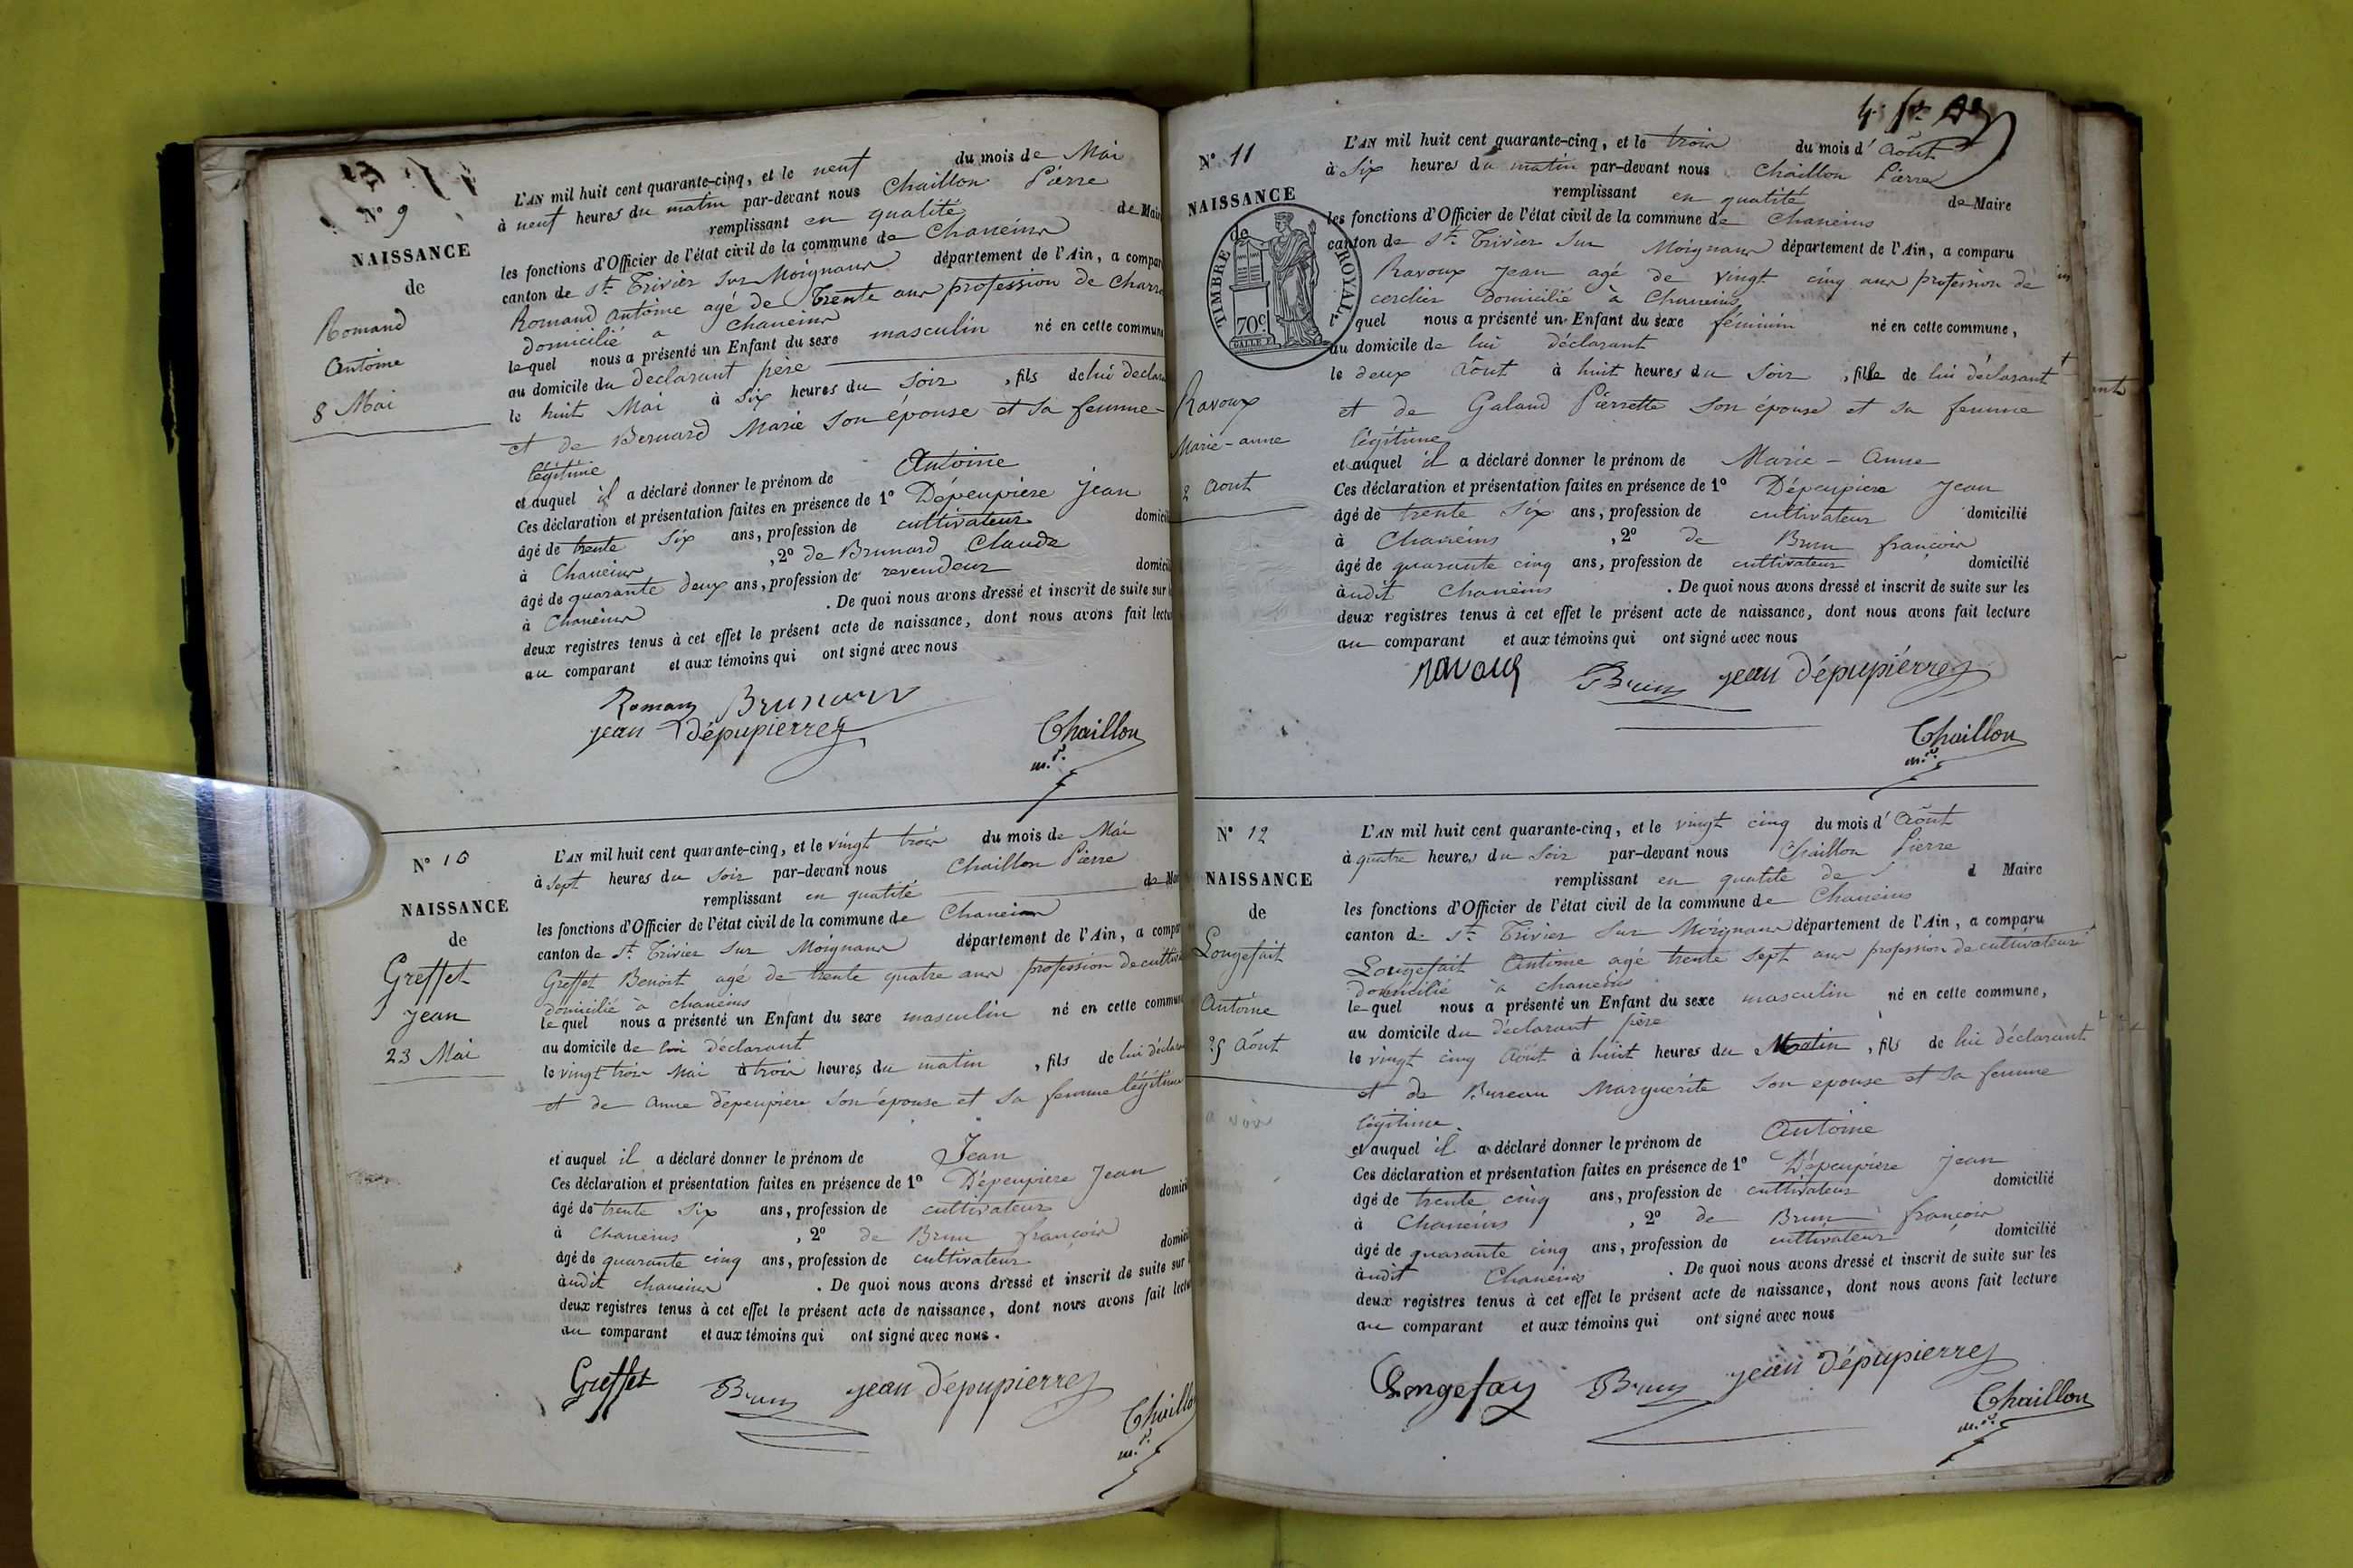 N° 9
NAISSANCE
de
Romand
Antoine
8 Mai
L'AN mil huit cent quarante-cinq, et le neuf du mois de Mai
à neuf heures du matin par-devant nous Chaillon Pierre
remplissant en qualité de Maire
les fonctions d'Officier de l'état civil de la commune de Chaneins
canton de St. Trivier sur Moignans département de l'Ain, a compar
Romand Antoine agé de Trente ans profession de Charr
domicilié a Chaneins
lequel nous a présenté un Enfant du sexe masculin né en cette commune
au domicile du declarant père
le huit Mai à Six heures du Soir, fils de lui declara
et de Bernard Marie Son épouse et sa femme
légitime
et auquel il a déclaré donner le prénom de Antoine
Ces déclaration et présentation faites en présence de 1° Dépeupière Jean
âgé de trente Six ans, profession de cultivateur domicil
à Chaneins, 2° de Brunard Claude
âgé de quarante deux ans, profession de revendeur domicil
à Chaneins. De quoi nous avons dressé et inscrit de suite sur l
deux registres tenus à cet effet le présent acte de naissance, dont nous avons fait lectu
au comparant et aux témoins qui ont signé avec nous
Roman Brunard
jean Dépupierre
Chaillon
m.r
N° 10
NAISSANCE
de
Greffet
Jean
23 Mai
L'AN mil huit cent quarante-cinq, et le vingt trois du mois de Mai
à Sept heures du Soir par-devant nous Chaillon Pierre
remplissant en qualité de Mai
les fonctions d'Officier de l'état civil de la commune de Chaneins
canton de St. Trivier Sur Moignans département de l'Ain, a compar
Greffet Benoit agé de trente quatre ans profession de cultiv
domicilié à chaneins
lequel nous a présenté un Enfant du sexe masculin né en cette commune
au domicile de lui déclarant
le vingt trois Mai à trois heures du matin, fils de lui déclaran
et de Anne dépeupière Son épouse et Sa femme légitime
et auquel il a déclaré donner le prénom de Jean
Ces déclaration et présentation faites en présence de 1° Dépeupière Jean
âgé de trente Six ans, profession de cultivateur domici
à Chaneins, 2° de Brun françois
âgé de quarante cinq ans, profession de cultivateur domici
àudit chaneins. De quoi nous avons dressé et inscrit de suite sur l
deux registres tenus à cet effet le présent acte de naissance, dont nous avons fait lectu
au comparant et aux témoins qui ont signé avec nous.
Greffet Brun jean Dépupierre
Chaillo
m.r
N° 11
NAISSANCE
de
TIMBRE ROYAL
70c
Ravoux
Marie-anne
2 Aout
L'AN mil huit cent quarante-cinq, et le trois du mois d'Août
à Six heures du matin par-devant nous Chaillon Pierre
remplissant en qualité de Maire
les fonctions d'Officier de l'état civil de la commune de Chaneins
canton de St. Trivier Sur Moignans département de l'Ain, a comparu
Ravoux Jean agé de vingt cinq ans profession de
cerclier domicilié à Chaneins
lequel nous a présenté un Enfant du sexe féminin né en cette commune,
au domicile de lui déclarant
le deux Août à huit heures du Soir, fille de lui déclarant
et de Galand Pierrette Son épouse et sa femme
légitime
et auquel il a déclaré donner le prénom de Marie-Anne
Ces déclaration et présentation faites en présence de 1° Dépeupière Jean
âgé de trente Six ans, profession de cultivateur domicilié
à Chaneins, 2° de Brun françois
âgé de quarante cinq ans, profession de cultivateur domicilié
àudit Chaneins. De quoi nous avons dressé et inscrit de suite sur les
deux registres tenus à cet effet le présent acte de naissance, dont nous avons fait lecture
au comparant et aux témoins qui ont signé avec nous
ravoux Brun jean Dépupierre
Chaillon
m.r
N° 12
NAISSANCE
de
Longefait
Antoine
25 Août
a voir
L'AN mil huit cent quarante-cinq, et le vingt cinq du mois d'Août
à quatre heures du Soir par-devant nous Chaillon Pierre
remplissant en qualité de d Maire
les fonctions d'Officier de l'état civil de la commune de Chaneins
canton de St. Trivier Sur Moignans département de l'Ain, a comparu
Longefait Antoine agé trente Sept ans profession de cultivateur
domicilié à chaneins
lequel nous a présenté un Enfant du sexe masculin né en cette commune,
au domicile du déclarant père
le vingt cinq Août à huit heures du Matin, fils de lui déclarant
et de Bureau Marguerite Son epouse et Sa femme
légitime.
et auquel il a déclaré donner le prénom de Antoine
Ces déclaration et présentation faites en présence de 1° Dépeupière Jean
âgé de trente cinq ans, profession de cultivateur domicilié
à Chaneins, 2° de Brun françois
âgé de quarante cinq ans, profession de cultivateur domicilié
àudit Chaneins. De quoi nous avons dressé et inscrit de suite sur les
deux registres tenus à cet effet le présent acte de naissance, dont nous avons fait lecture
au comparant et aux témoins qui ont signé avec nous
Longefay Brun jean Dépupierre
Chaillon
m.r